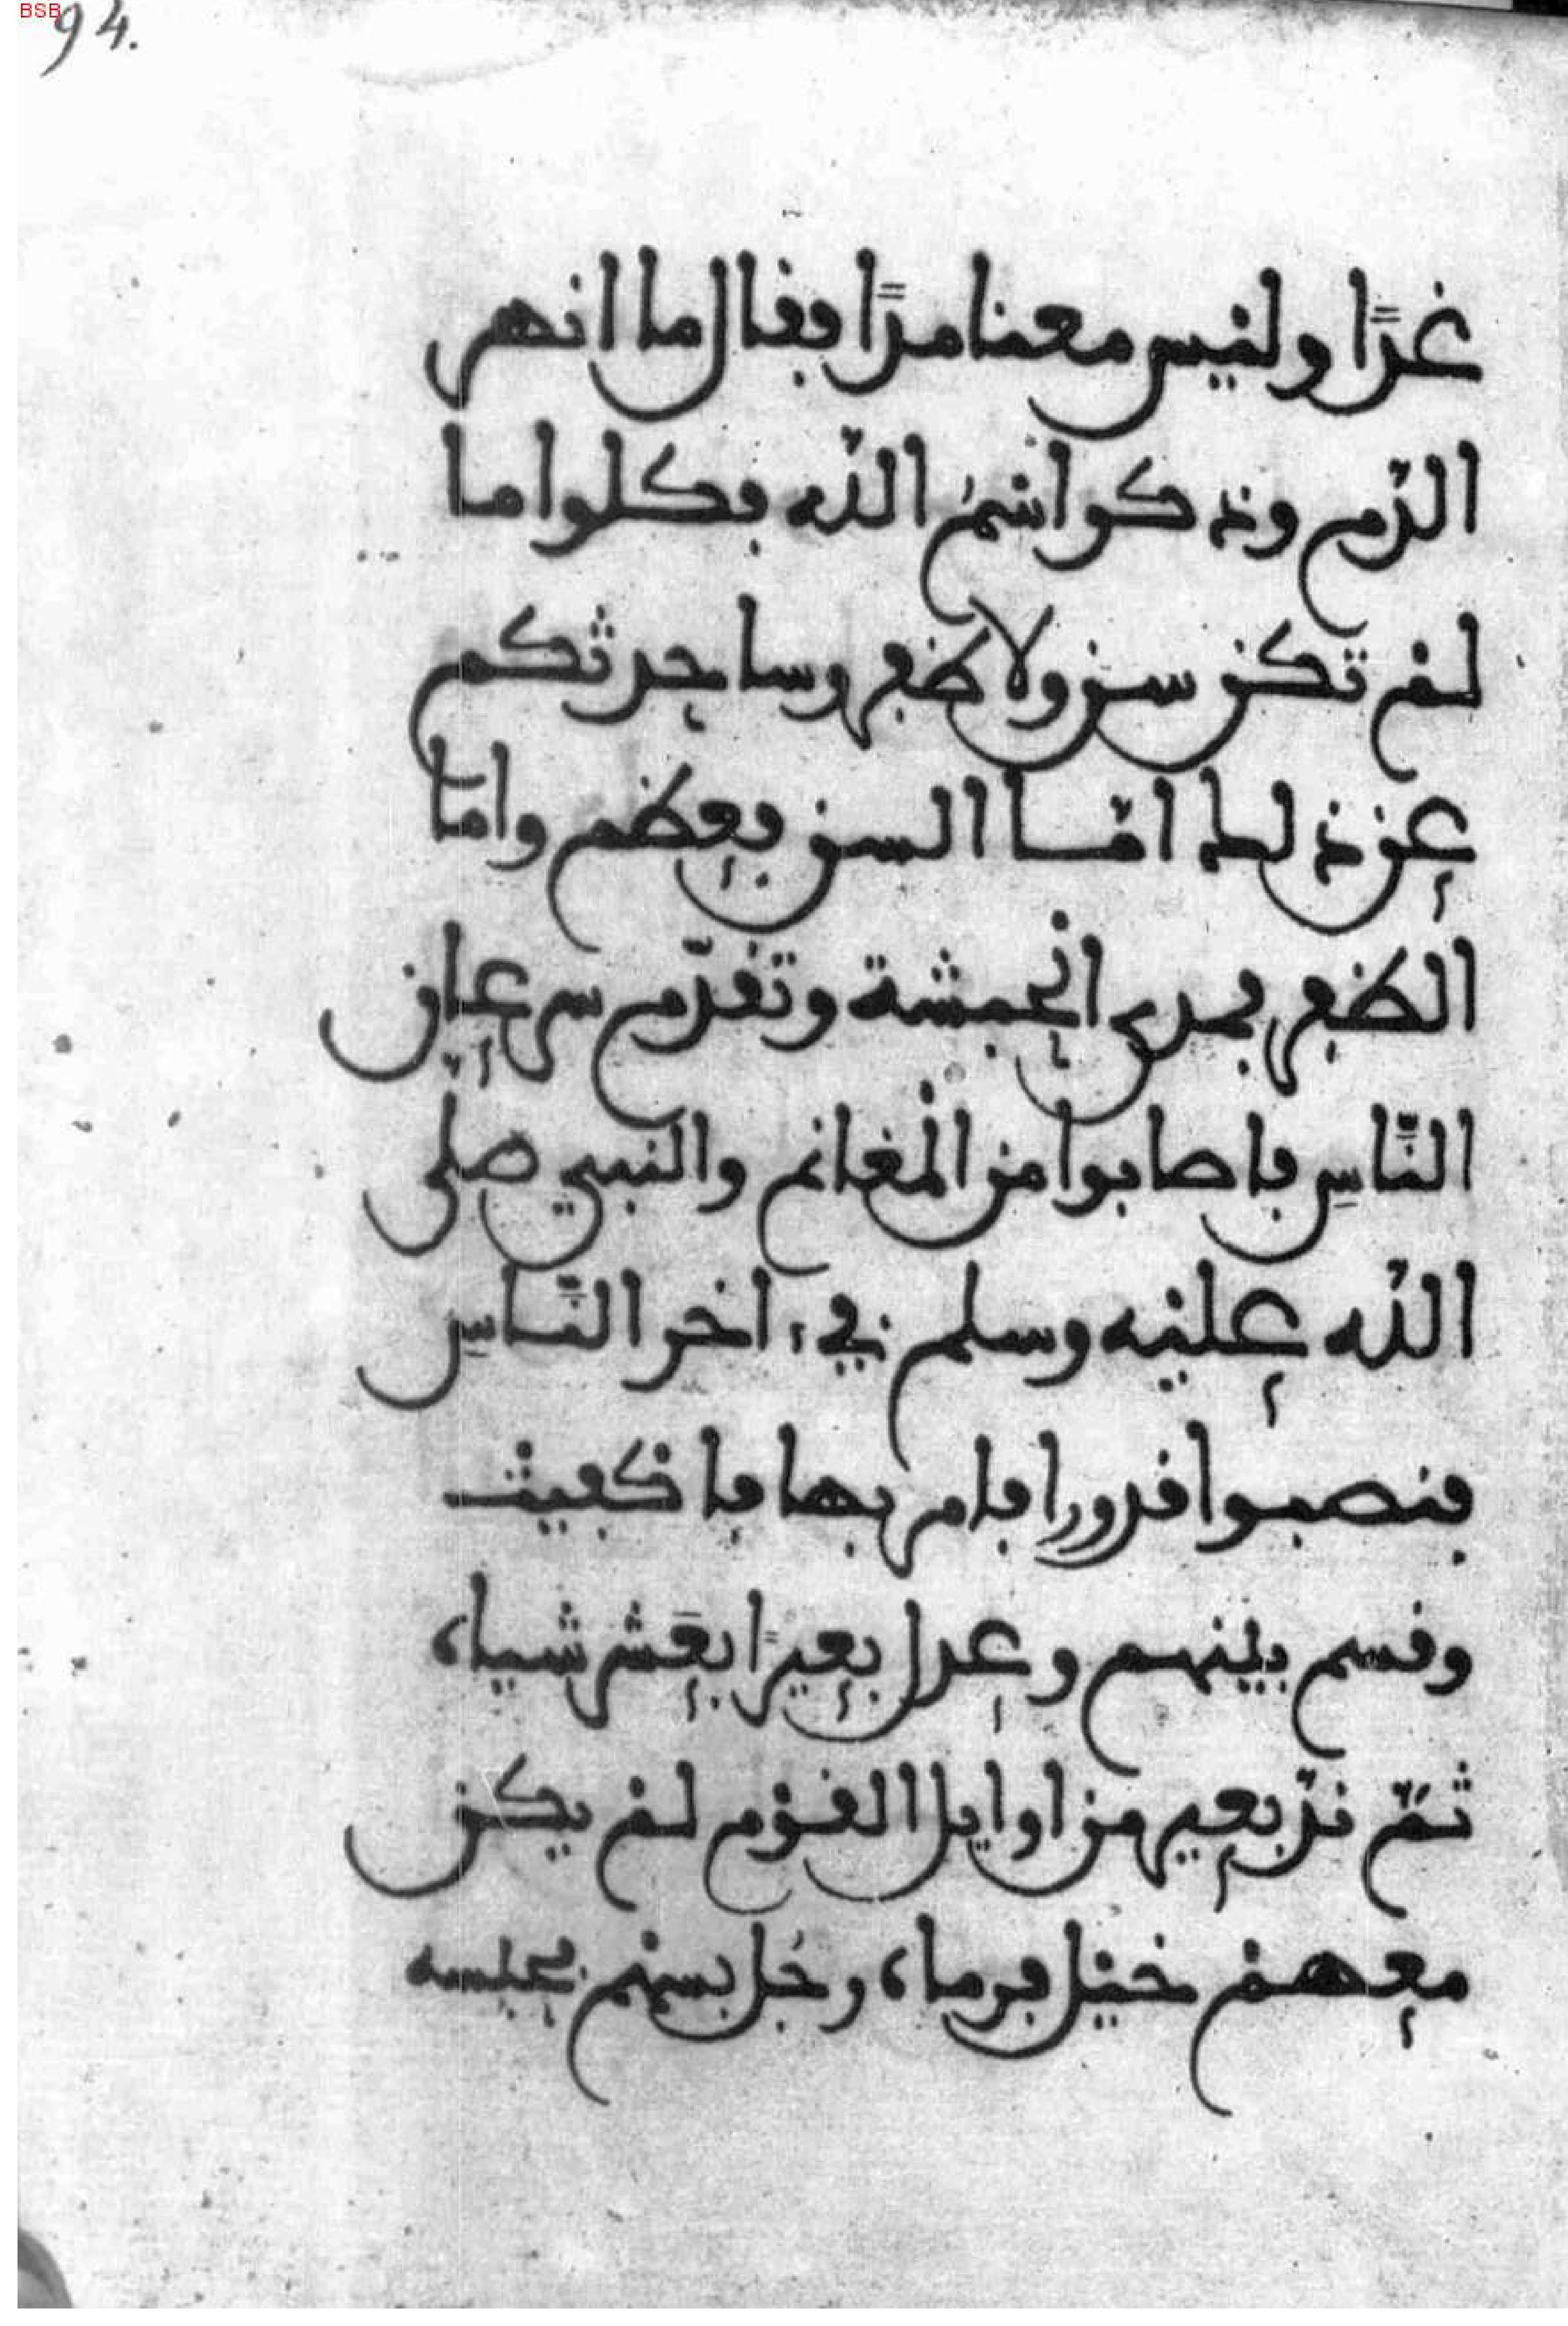 BSB
94.
غدًا وليس معنا مدًا فقال ما انهر
الدّم وذكر اسم اللّه فكلوا ما
لم تكن سن ولا ظفر وساحدثكم
عن ذلك امّا السن فعظم وامّا
الظفر فمدى الحبشة وتقدّم سرعان
النّاسِ فاصابوا من المغانم والنبي صلى
اللّه عليه وسلم في ءاخر النّاسِ
فنصبوا قدورا فامر بها فاكفيت
وقسم بينهم وعدل بعيرًا بعَشر شياه
ثمّ ندّ بعير من اوايل القوم لم يكن
معهم خيل فرماه رجُل بسهم فحبسه